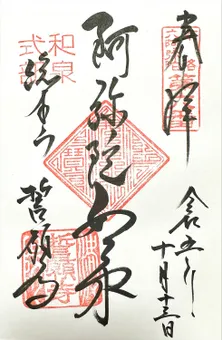 奉拝
令和五年
十月十三日
阿弥陀如来
和泉
式部
総本山
誓願寺